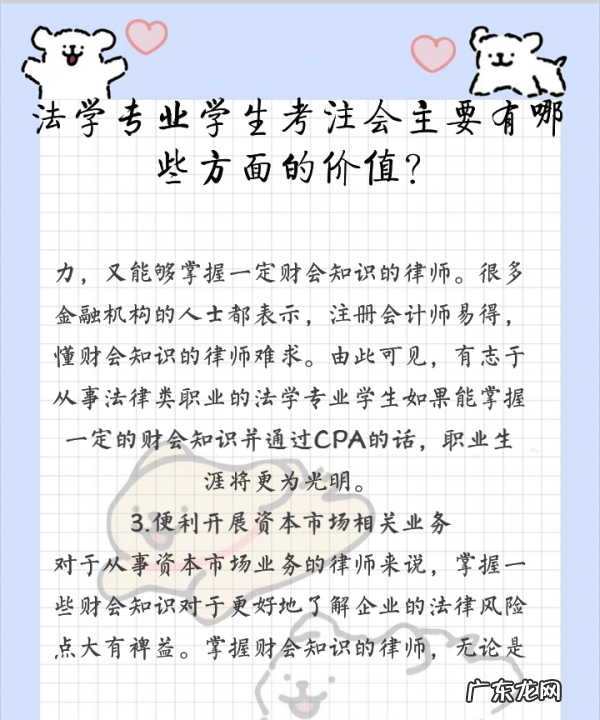 法学专业学生考注会主要有哪
些方面的价值？
力，又能够掌握一定财会知识的律师。很多
金融机构的人士都表示，注册会计师易得，
懂财会知识的律师难求。由此可见，有志于
从事法律类职业的法学专业学生如果能掌握
一定的财会知识并通过CPA的话，职业生
涯将更为光明。
3.便利开展资本市场相关业务
对于从事资本市场业务的律师来说，掌握一
些财会知识对于更好地了解企业的法律风险
点大有裨益。掌握财会知识的律师，无论是
广东龙网